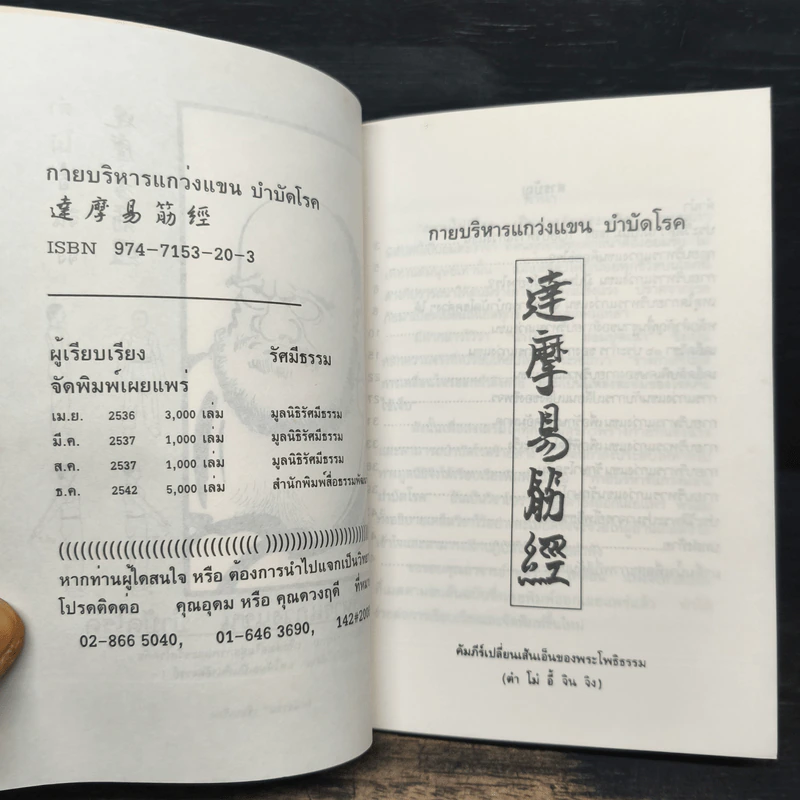 กายบริหารแกว่งแขน บำบัดโรค
達摩易筋經
ISBN 974-7153-20-3
ผู้เรียบเรียง รัศมีธรรม
จัดพิมพ์เผยแพร่
เม.ย. 2536 3,000 เล่ม มูลนิธิรัศมีธรรม
มี.ค. 2537 1,000 เล่ม มูลนิธิรัศมีธรรม
ส.ค. 2537 1,000 เล่ม มูลนิธิรัศมีธรรม
ธ.ค. 2542 5,000 เล่ม สำนักพิมพ์สื่อธรรมพัฒน
หากท่านผู้ใดสนใจ หรือ ต้องการนำไปแจกเป็นวิทย
โปรดติดต่อ คุณอุดม หรือ คุณดวงฤดี ที่หมา
02-866 5040, 01-646 3690, 142#200
กายบริหารแกว่งแขน บำบัดโรค
達摩易筋經
คัมภีร์เปลี่ยนเส้นเอ็นของพระโพธิธรรม
(ต๋า โม่ อี้ จิน จิง)